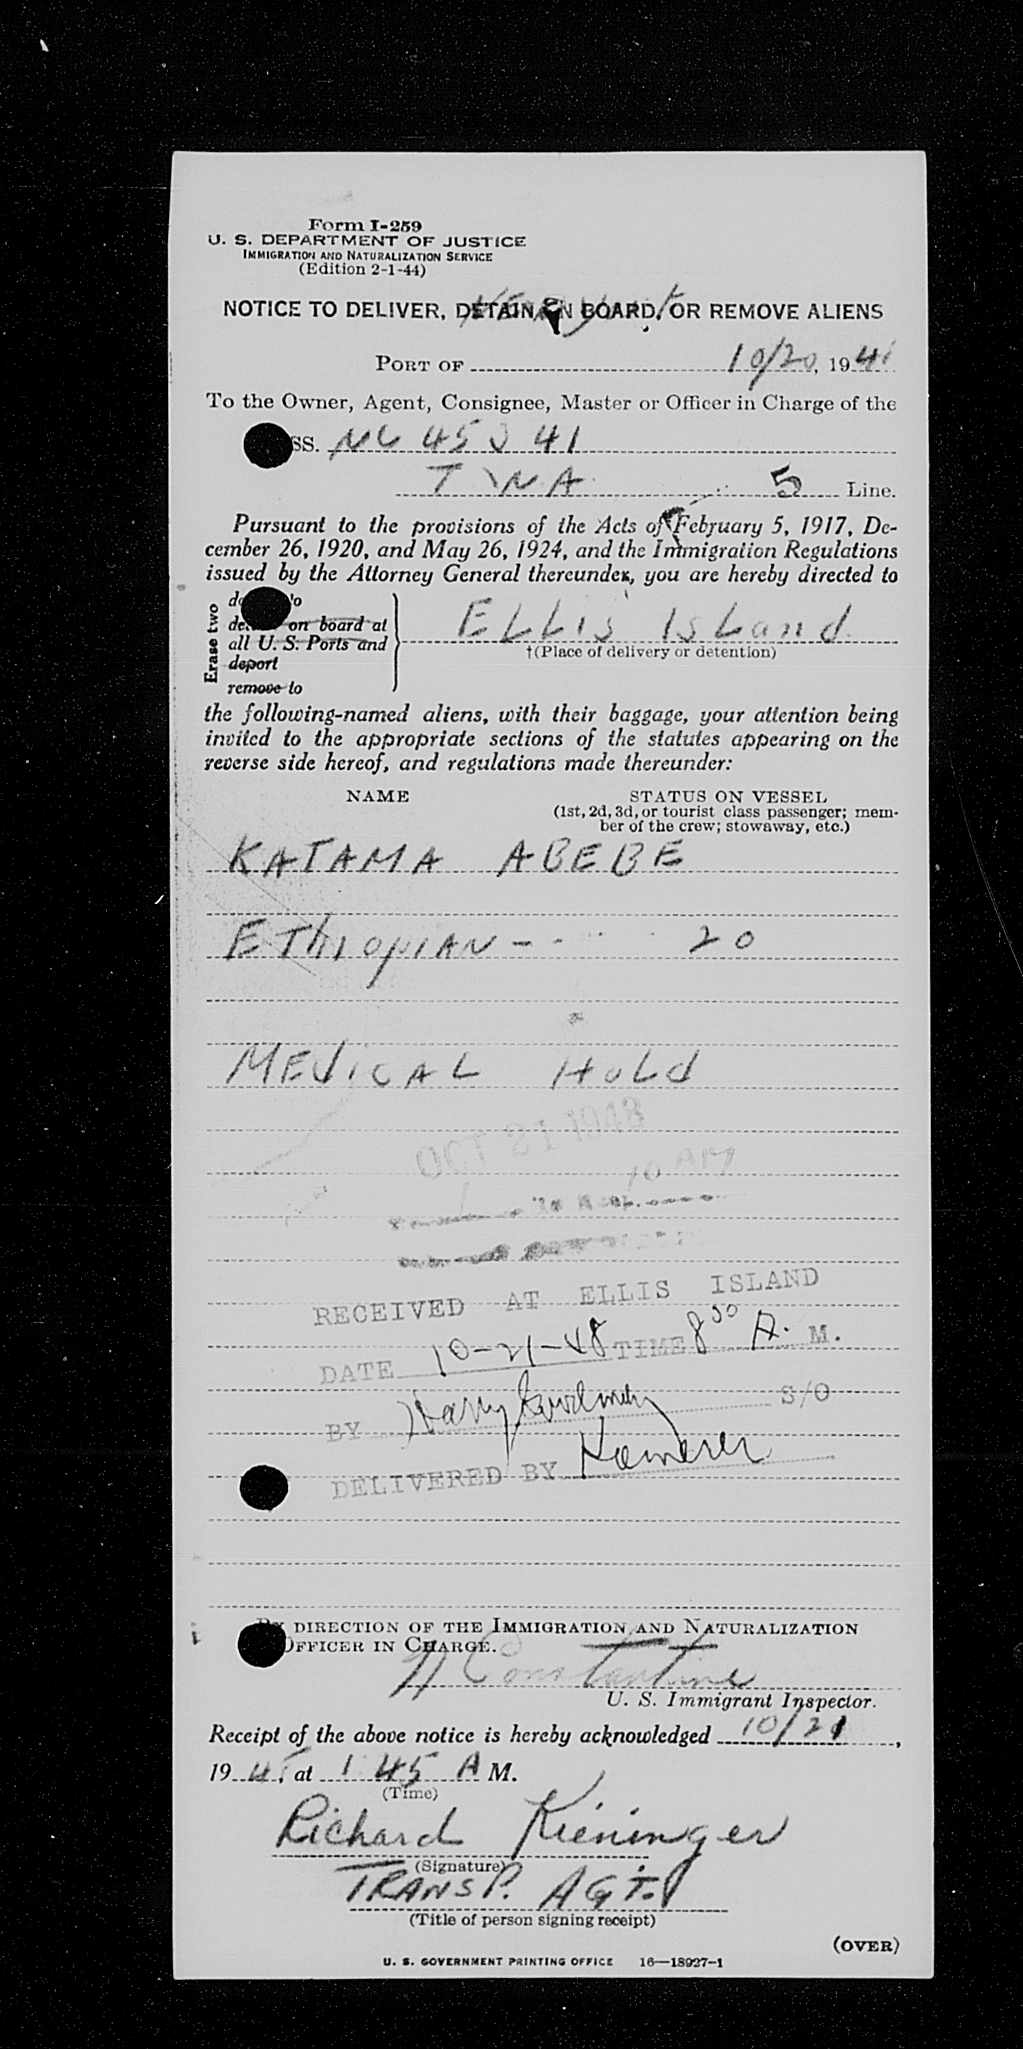 Form I-259
U. S. DEPARTMENT OF JUSTICE
IMMIGRATION AND NATURALIZATION SERVICE
(Edition 2-1-44)
NOTICE TO DELIVER, DETAIN ON BOARD, OR REMOVE ALIENS
PORT OF 10/20, 194
To the Owner, Agent, Consignee, Master or Officer in Charge of the
SS. NC 45341
TWA 5 Line.
Pursuant to the provisions of the Acts of February 5, 1917, De-
cember 26, 1920, and May 26, 1924, and the Immigration Regulations
issued by the Attorney General thereunder, you are hereby directed to
Erase two
on board at
all U. S. Ports and
deport
remove to
ELLIS ISLand
†(Place of delivery or detention)
the following-named aliens, with their baggage, your attention being
invited to the appropriate sections of the statutes appearing on the
reverse side hereof, and regulations made thereunder:
NAME STATUS ON VESSEL
(1st, 2d, 3d, or tourist class passenger; mem-
ber of the crew; stowaway, etc.)
KATAMA ABEBE
EThIOpIAN - - - 20
MEdiCAL HoLd
OCT 21 1948
10 AM
RECEIVED AT ELLIS ISLAND
DATE 10-21-48 TIME 8 30 A. M.
BY Harry S/O
DELIVERED BY
BY DIRECTION OF THE IMMIGRATION AND NATURALIZATION
OFFICER IN CHARGE.
Constantine
U. S. Immigrant Inspector.
Receipt of the above notice is hereby acknowledged 10/21,
194, at 1 45 A M.
(Time)
Richard Kieninger
(Signature)
TRANSP. AGT.
(Title of person signing receipt)
(OVER)
U. S. GOVERNMENT PRINTING OFFICE 16—18927-1